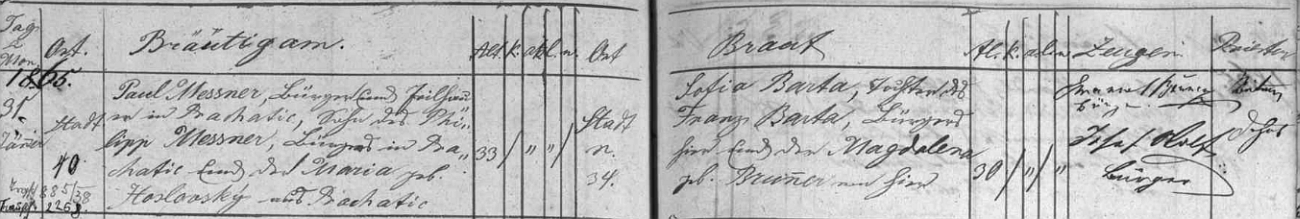 Tag
u
Mon.
Ort.
Bräutigam.
Alt. k. ak. l. w.
Ort
Braut
Al. k. ak. l. w.
Zeugen
Priester
1865.
31.
Jäner
Stadt
40.
Paul Messner, Bürger und Feilhau-
er in Prachatic, Sohn des Phi-
lipp Messner, Bürgers in Pra-
chatic und der Maria geb.
Hoslovský aus Prachatic
33 / " " /
Stadt
n.
34.
Sofia Barta, Tochter des
Franz Barta, Bürgers
hier und der Magdalena
geb. Brunner von hier
30 / " / "
Bürger
Josef
Bürger
885/38